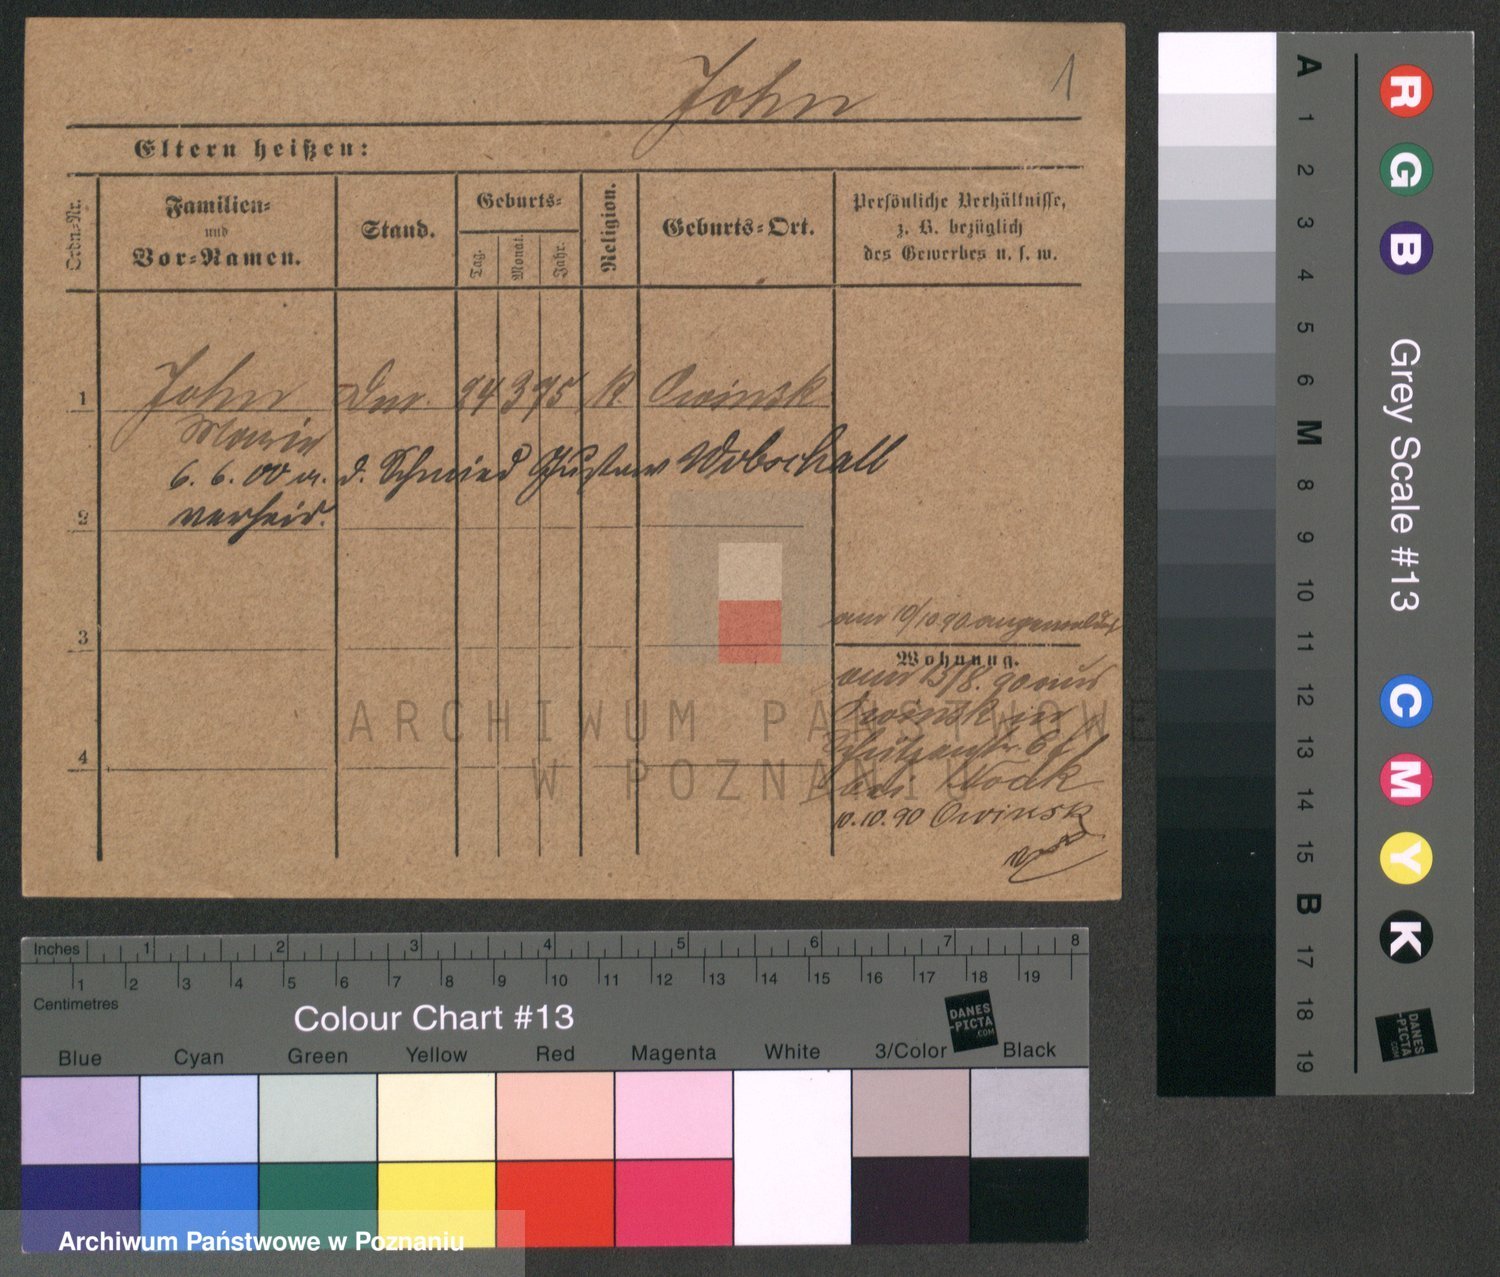 John
1
Eltern heißen:
Ordn.-Nr.
Familien-
und
Vor-Namen.
Stand.
Geburts-
Tag.
Monat.
Jahr.
Religion.
Geburts-Ort.
Persönliche Verhältnisse,
z. B. bezüglich
des Gewerbes u. s. w.
1
John
24 3 75 K. Owinsk
Marie
6. 6. 00 m. d. Schmied Gustav Wobschall
verheir.
2
3
am 10/10 90 angemeldet
Wohnung.
am 13/8. 90 aus
Owinsk in
Schützenstr. 6
bei
4
10.10.90 Owinsk
ARCHIWUM PAŃSTWOWE
W POZNANIU
Inches 1 2 3 4 5 6 7 8
1 2 3 4 5 6 7 8 9 10 11 12 13 14 15 16 17 18 19
Centimetres
Colour Chart #13
DANES
-PICTA
.COM
Blue Cyan Green Yellow Red Magenta White 3/Color Black
Archiwum Państwowe w Poznaniu
A 1 2 3 4 5 6 M 8 9 10 11 12 13 14 15 B 17 18 19
R G B
Grey Scale #13
C M Y K
DANES
-PICTA
.COM